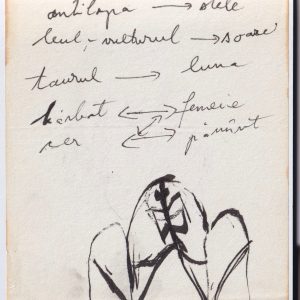 antilopa → stele
leul, - vulturul → soare
taurul → luna
bărbat ↔ femeie
cer ↔ pămînt